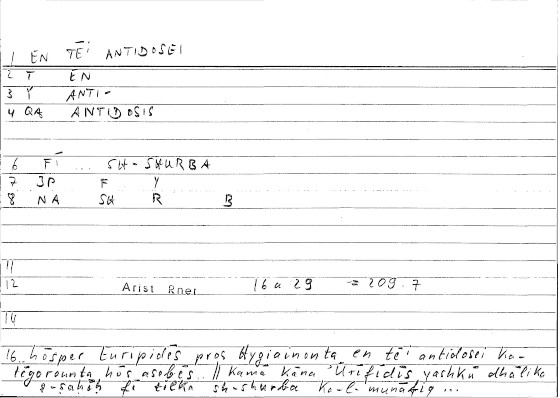 1 EN TĒI ANTIDOSEI
2 T EN
3 Y ANTI-
4 QA ANTIDOSIS
6 FĪ ... SH-SHURBA
7 JP F Y
8 NA SH R B
11
12 Arist Rher 16 a 29 = 209.7
14
16 hōsper Euripidēs pros Hygiainonta en tēi antidosei ka-
tēgorounta hōs asebēs .. // Kamā kāna 'Ūrīfīdīs yashkū dhālika
fī tilka sh-shurba ka-l-munāfiq ...